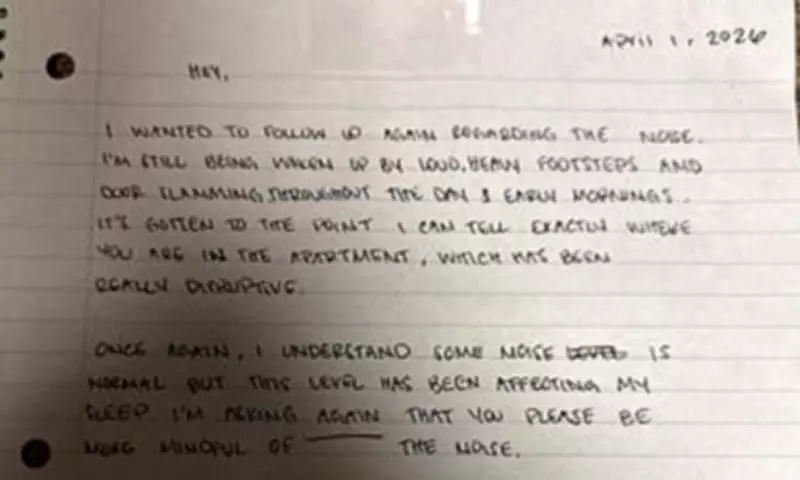 April 1, 2026
HEY,
I WANTED TO FOLLOW UP AGAIN REGARDING THE NOISE.
I'M STILL BEING WAKEN UP BY LOUD, HEAVY FOOTSTEPS AND
DOOR SLAMMING THROUGHOUT THE DAY & EARLY MORNINGS.
IT'S GOTTEN TO THE POINT I CAN TELL EXACTLY WHERE
YOU ARE IN THE APARTMENT, WHICH HAS BEEN
REALLY DISRUPTIVE.
ONCE AGAIN, I UNDERSTAND SOME NOISE LEVEL IS
NORMAL BUT THIS LEVEL HAS BEEN AFFECTING MY
SLEEP. I'M ASKING AGAIN THAT YOU PLEASE BE
MORE MINDFUL OF THE NOISE.